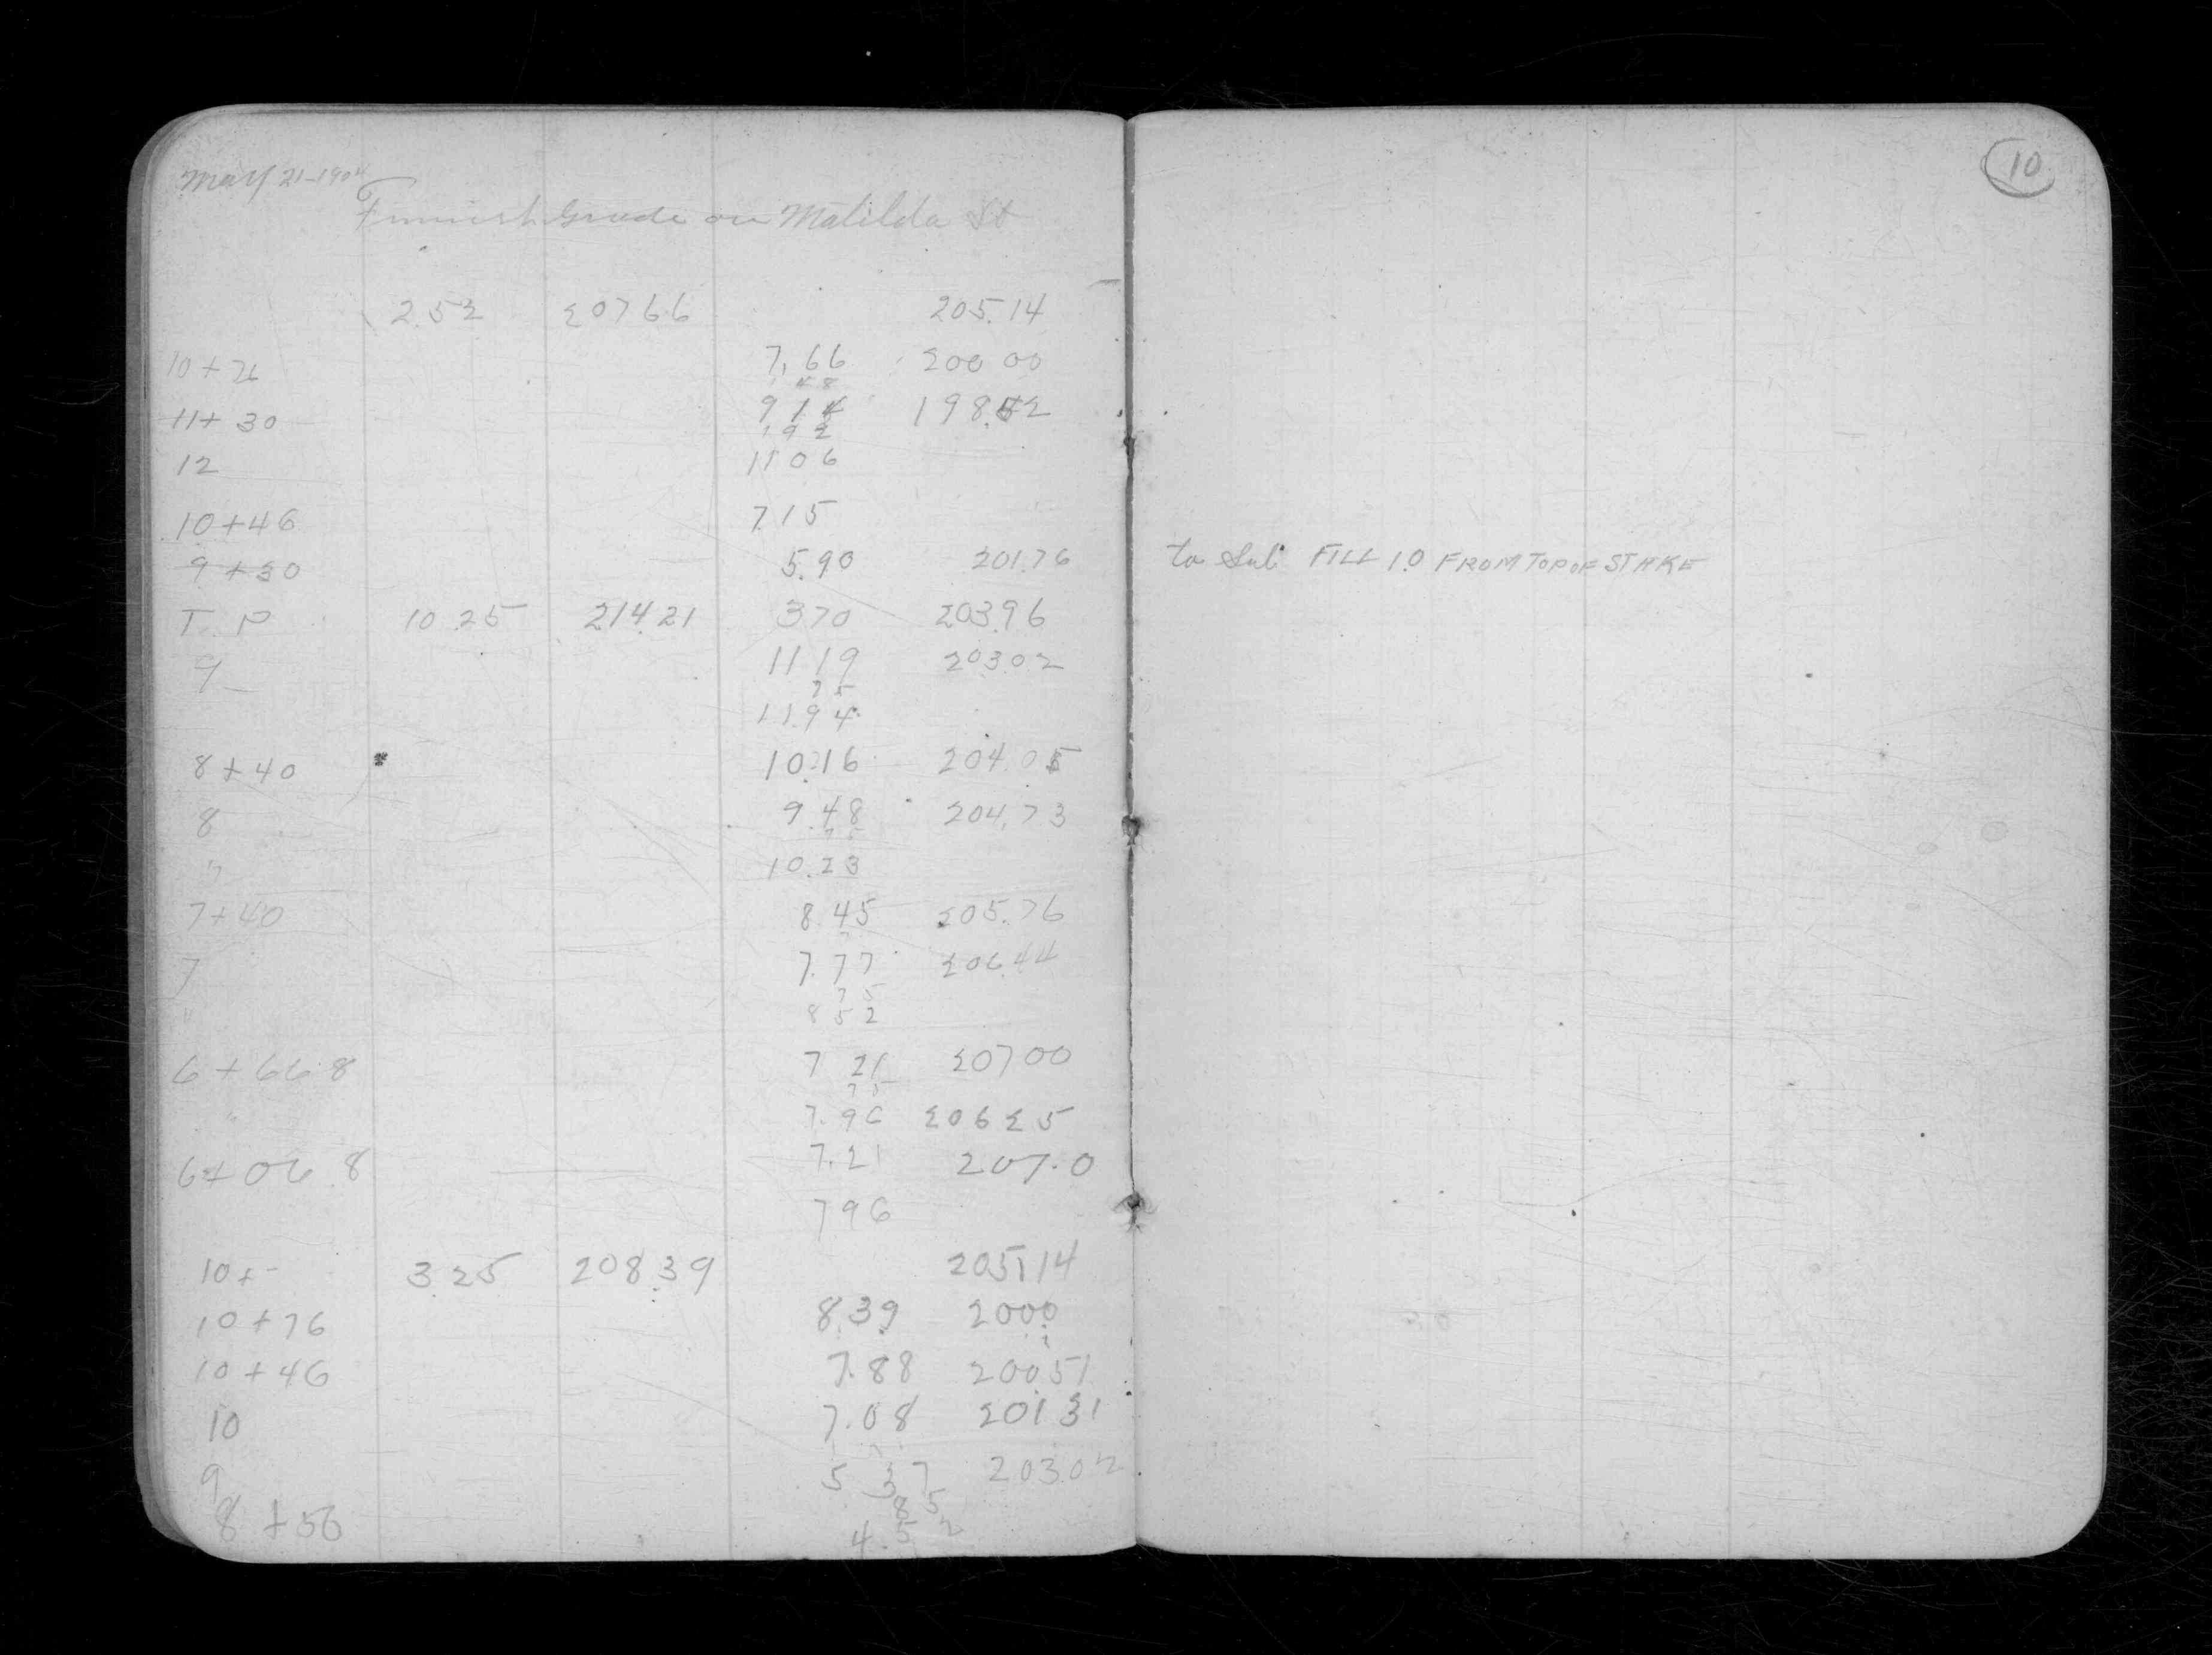 May 21-1904
10
Finnish Grade on Matilda St
2.52 20766 205.14
10+76 7.66 200 00
48
11+30 914 198.52
192
12 1106
10+46 715
9+30 5.90 201.76 to Sub FILL 1.0 FROM TOP OF STAKE
T. P 10 25 214.21 370 203.96
9 11 19 203.02
75
11.94
8+40 10.16 204.05
8 9.48 204.73
75
" 10.23
7+40 8.45 205.76
7 7.77 206.44
75
" 852
6+66.8 7 21 20700
75
" 7.96 20625
6+06.8 7.21 207.0
796
10+- 3.25 208.39 205.14
10+76 8.39 2000
10+46 7.88 20051
10 7.08 20131
9 5 37 203.02
85
8+50 4.52